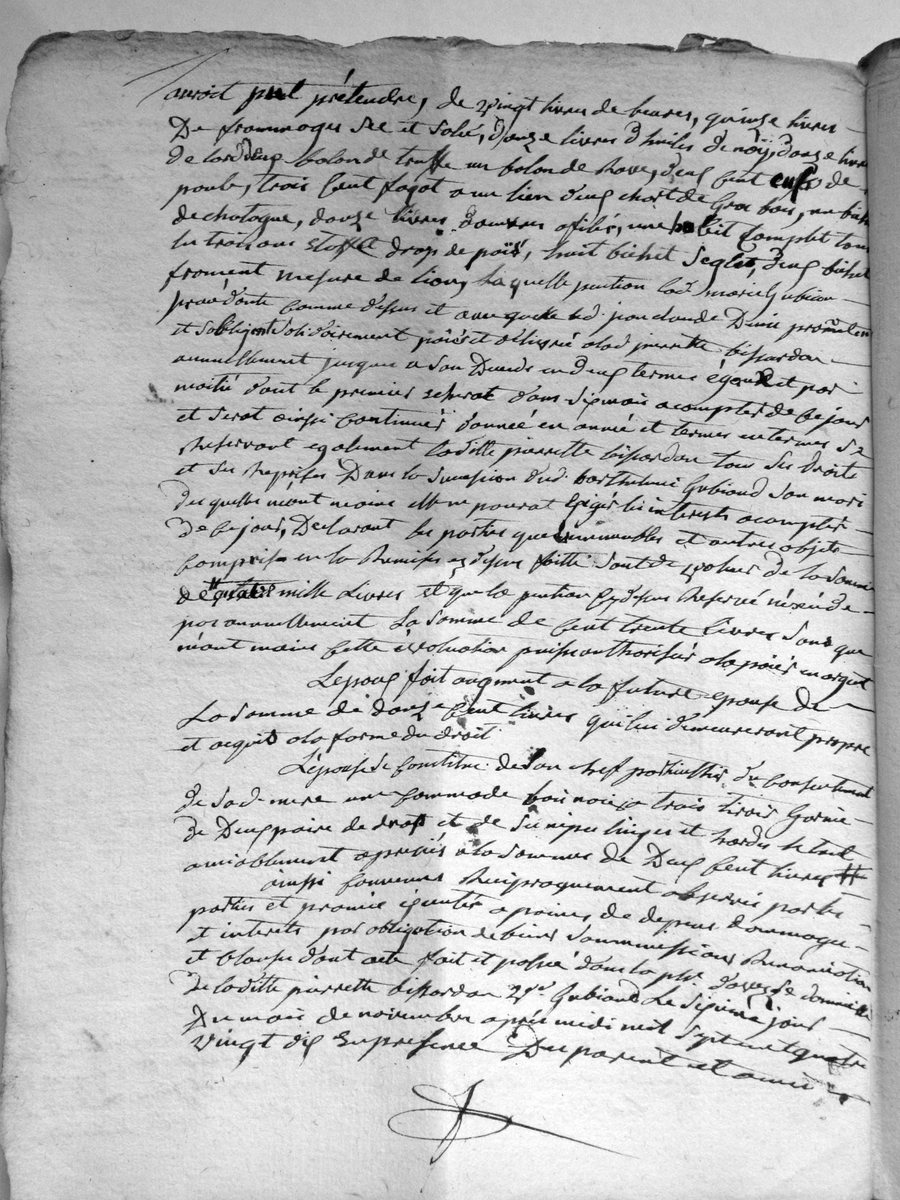 auroit put prétendre, de vingt livres de beures, quinze livres
De frommages sec et salé, douze livres d'huiles de noix, douze livres
de lard deux balon de truffe un balon de rave, deux cent eufs de
poule, trois cent fagot a un lien deux chart de gros bois, un bichet
de chatagne, douze livres d'oeuvres afilés, un habit complet tous
les trois ans etoffe drap de païs, huit bichet segles, deux bichet
froment mesure de lion, laquelle pention lad marie Gubian
procédante comme dessus et avec jean claude Denis promettent
et s'obligent solidairement païer et délivré a lad pierrette bissardon
annuellement jusque a son Decéds en deux termes égaux et par
moitié dont le premier echerat dans six mois a compter de ce jour
et serat ainsi continuer d'année en année et termes en termes se
Reservant egalement laditte pierrette bissardon tous ses droits
et ses reprises Dans la succession dud. barthelemi Gubiand son mari
des quelles néant moins elle ne pourrat exiger les interests a compter
de ce jour, Declarant les parties que les immeubles et autres objets
comprise en la Remises cy dessus faitte sont de valeur de la somme
de quatre mille Livres et que la pention cy dessus Reservée n'exéde
pas annuellement La somme de cent trente livres sans que
néant moins cette évaluation puisse authoriser a la païer en argent
Lepoux fait augment a la future epouse de
La somme de douze cent livres qui lui demeureront propre
et acquis a la forme du droit
L'épouse se constitue de son chef particulier du consentement
de sad. mere une commode bois noier a trois tirois Garnie
de Deux paire de drap et de ses nipes linges et hardes le tout
amiablement apresiés a la somme de Deux cent livres
ainsi convenus Reciproquement observer par les
parties et promis éxécuter a peines de depens dommage
et interets par obligation de biens soummissions Renonciation
et clause dont acte fait et passé dans la psse d'aveze domicille
de laditte pierrette bissardon Ve Gubiand Le sixieme jour
Du mois de novembre après midi mil sept cent quatre
vingt dix En présence Des parent et amis